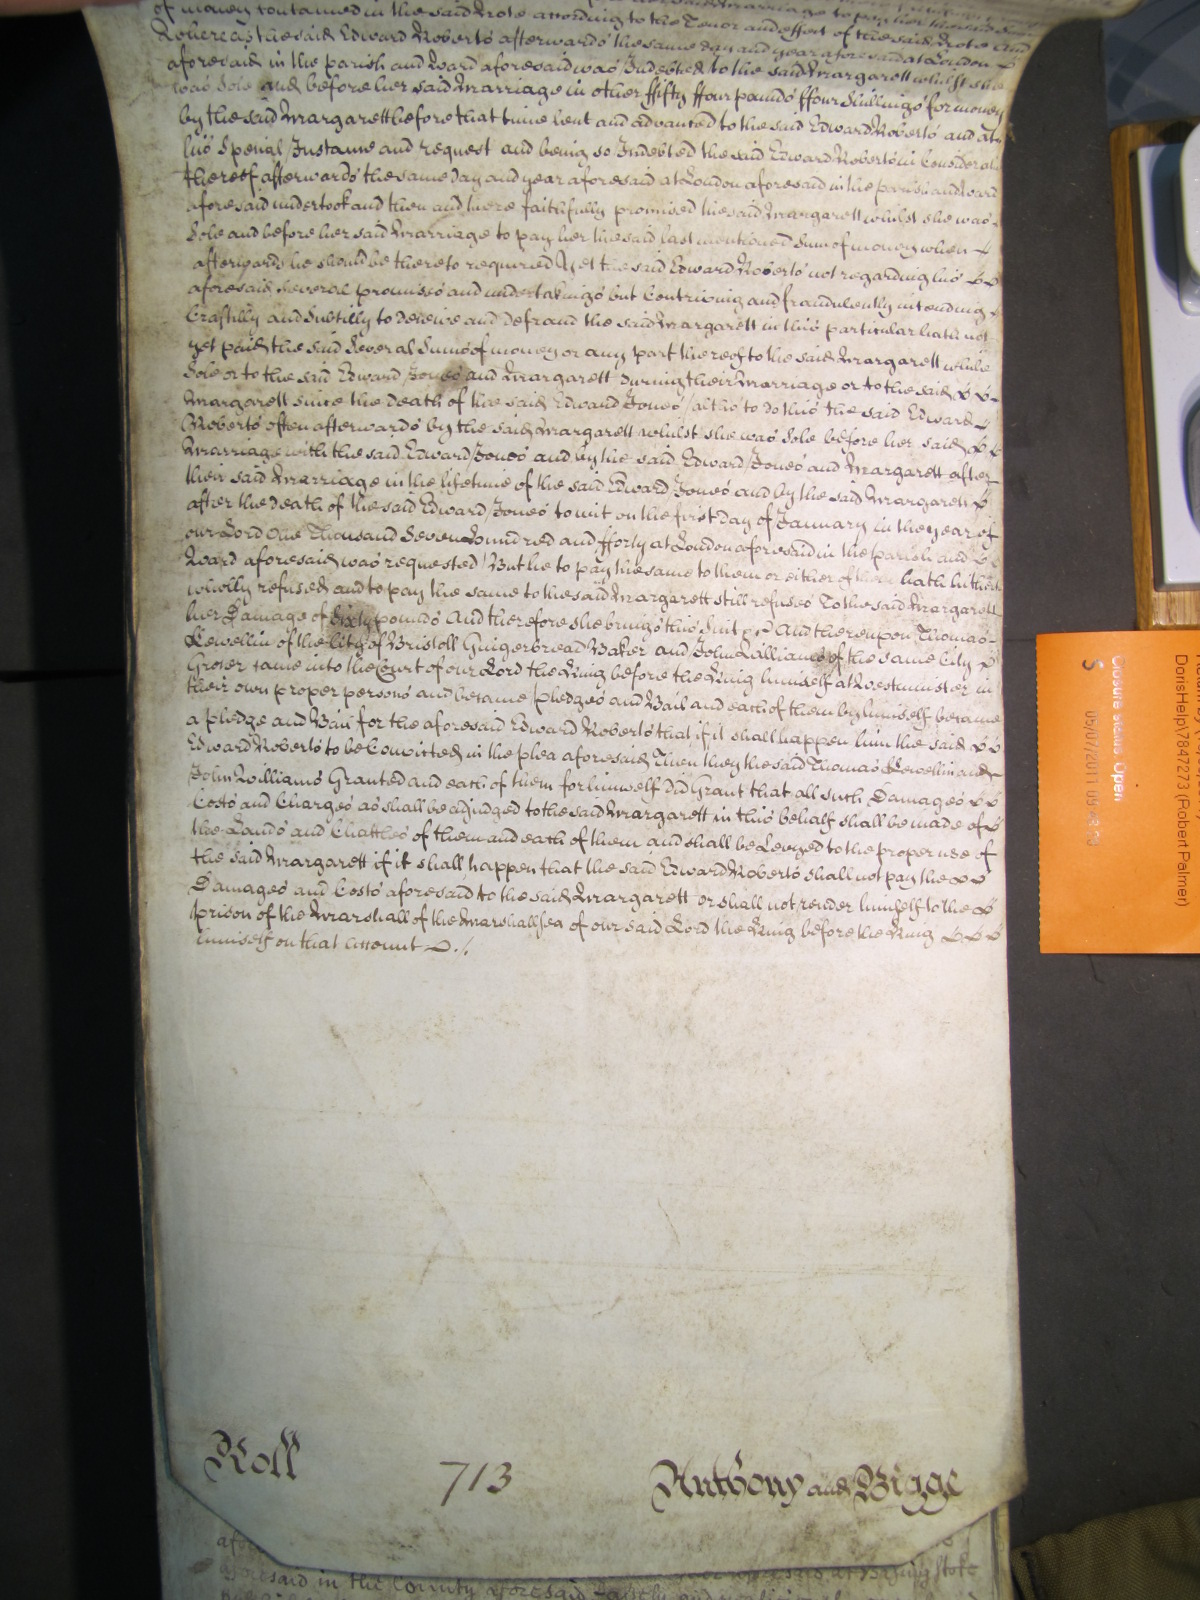 of money contained in the said Note according to the Tenor and effect of the said Note And
Whereas the said Edward Roberts afterwards the same day and year aforesaid at London
aforesaid in the parish and Ward aforesaid was Indebted to the said Margarett whilst she
was Sole and before her said Marriage in other ffifty ffour pounds ffour Shillings for money
by the said Margarett before that time lent and advanced to the said Edward Roberts and att
his Special Instance and request and being so Indebted the said Edward Roberts in Consideration
thereof afterwards the same day and year aforesaid at London aforesaid in the parish and Ward
aforesaid undertook and then and there faithfully promised the said Margarett whilst she was
Sole and before her said Marriage to pay her the said last mentioned Sum of money when
afterwards he should be thereto required Yet the said Edward Roberts not regarding his
aforesaid Several promises and undertakings but Contriving and fraudulently intending
Craftily and Subtilly to deceive and defraud the said Margarett in this particular hath not
yet paid the said Several Sums of money or any part thereof to the said Margarett while
Sole or to the said Edward Jones and Margarett during their Marriage or to the said
Margarett since the death of the said Edward Jones / altho' to do this the said Edward
Roberts often afterwards by the said Margarett whilst she was Sole before her said
Marriage with the said Edward Jones and by the said Edward Jones and Margarett after
their said Marriage in the lifetime of the said Edward Jones and by the said Margarett
after the death of the said Edward Jones to wit on the first day of January in the year of
our Lord One Thousand Seven Hundred and fforty at London aforesaid in the parish and
Ward aforesaid was requested / But he to pay the same to them or either of them hath hitherto
wholly refused and to pay the same to the said Margarett still refuses To the said Margarett
her Damage of Sixty pounds And therefore she brings this Suit &c And thereupon Thomas
Lewellin of the City of Bristoll Gingerbread Baker and John Williams of the same City
Grocer came into the Court of our Lord the King before the King himself at Westminster in
their own proper persons and became pledges and Bail and each of them by himself became
a pledge and Bail for the aforesaid Edward Roberts that if it shall happen him the said
Edward Roberts to be Convicted in the plea aforesaid Then they the said Thomas Lewellin and
John Williams Granted and each of them for himself did Grant that all such Damages
Costs and Charges as shall be adjudged to the said Margarett in this behalf shall be made of
the Lands and Chattles of them and each of them and shall be Levyed to the proper use of
the said Margarett if it shall happen that the said Edward Roberts shall not pay the
Damages and Costs aforesaid to the said Margarett or shall not render himself to the
prison of the Marshall of the Marshallsea of our said Lord the King before the King
himself on that Account
Roll 713 Anthony and Bigge
aforesaid in the County aforesaid
Closure status: Open
5 05/07/2011 09:23:23
DorisHelp\7847273 (Robert Palmer)